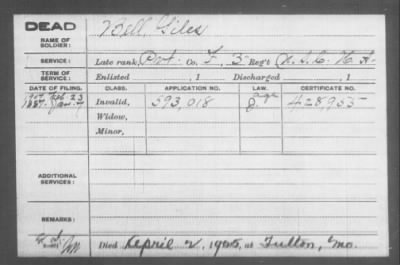 DEAD
NAME OF SOLDIER:
Bell, Giles
SERVICE:
Late rank, Pvt. Co. F, 3" Reg't U.S.C. H. A.
TERM OF SERVICE:
Enlisted , 1 Discharged , 1
DATE OF FILING. CLASS. APPLICATION NO. LAW. CERTIFICATE NO.
Invalid, 593,018 428,955
Widow,
Minor,
ADDITIONAL SERVICES:
REMARKS:
Died April 2, 1905, at Fulton, Mo.